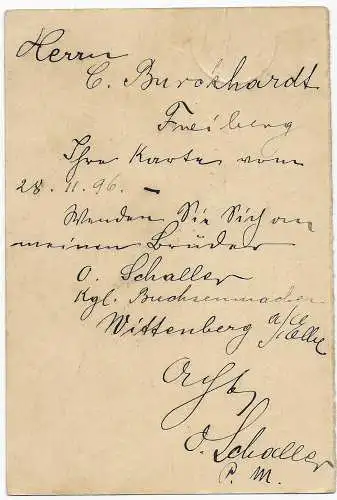 Herrn
C. Burckhardt
Freiberg
Ihre Karte vom
28. 11. 96. —
Wenden Sie Sich an
meinen Brüder
O. Schaller
Kgl. Buchsenmacher
Wittenberg a/d Elbe
O. Schaller
P. M.